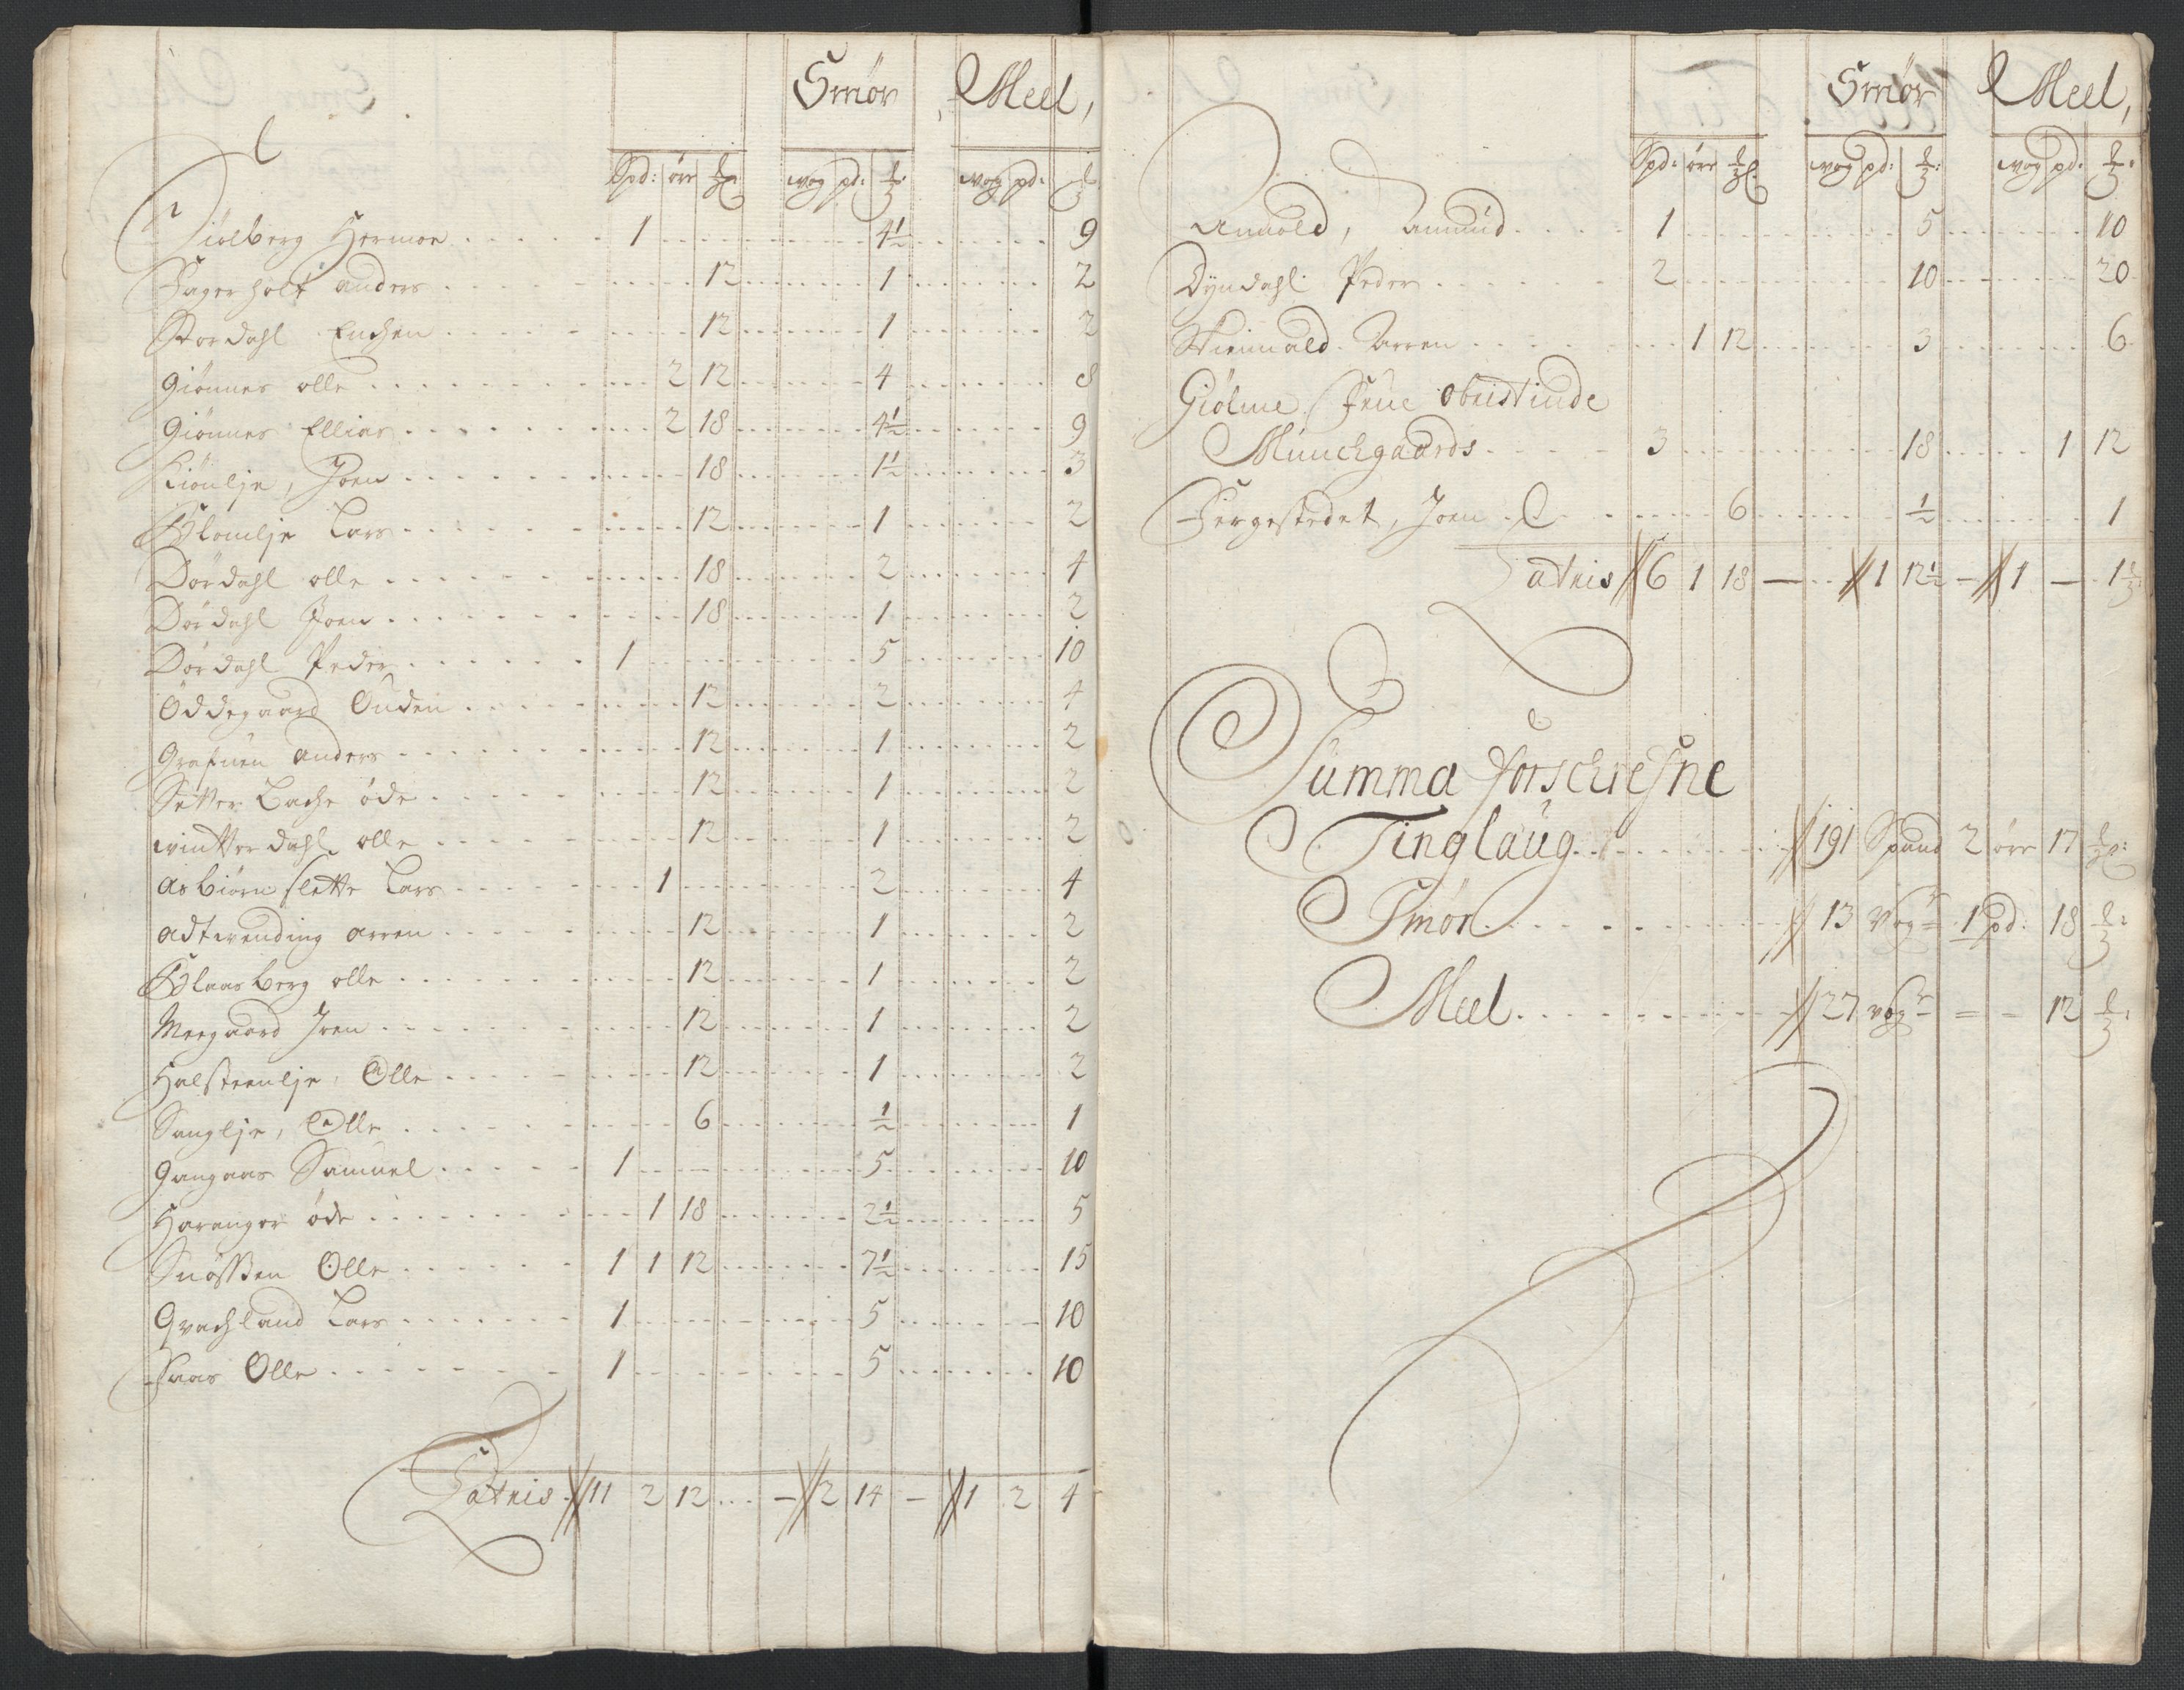 Smör Meel,
Spd: öre wog pd: wog pd:
Siölberg Hermoe 1 4½ 9
Fagerholt anders 12 1 2
Stordahl Enchen 12 1 2
Giönnes olle 2 12 4 8
Giönnes Ellias 2 18 4½ 9
Kiönlje, Joen 18 1½ 3
Blomlje Lars 12 1 2
Dördahl olle 18 2 4
Dördahl Joen 18 1 2
Dördahl Peder 1 5 10
Öddegaard Ouden 12 2 4
Grafuen anders 12 1 2
Setter Bache öde 12 1 2
wintterdahl olle 12 1 2
asbiörnslette Lars 1 2 4
adtwending arren 12 1 2
Blaasberg olle 12 1 2
Moegaard Joen 12 1 2
Halsteenlje, Olle 12 1 2
Sanglje, Olle 6 ½ 1
Gangaas Samuel 1 5 10
Haranger öde 1 18 2½ 5
Snössen Olle 1 1 12 7½ 15
Qvachland Lars 1 5 10
Faas Olle 1 5 10
Latris 11 2 12 - 2 14 - 1 2 4
Smör Meel,
Spd: öre wog pd: wog pd:
Amund 1 5 10
Dyndahl Peder 2 10 20
Arren 1 12 3 6
Giölme Frue Obristinde
Munchgaards 3 18 1 12
Fergestedet, Joen 6 ½ 1
Latris 6 1 18 - 1 12½ - 1 - 1
Summa forschrefne
Tinglaug 191 Spand 2 öre 17
Smör 13 Vog 1 pd: 18
Meel 27 vog = - 12